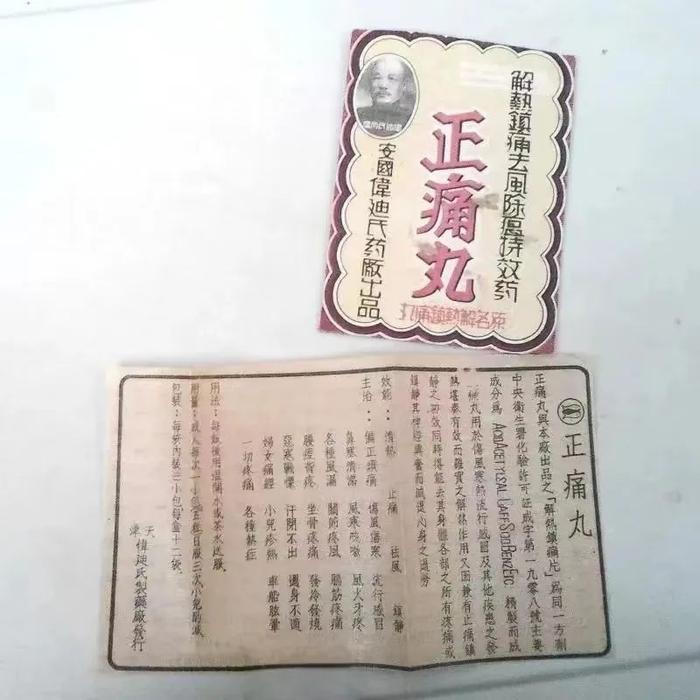 解熱鎮痛去風除瘟特效药
正痛丸
安國偉迪氏药廠出品
原名解熱鎮痛丸
正痛丸
正痛丸與本廠出品之「解熱鎮痛片」為同一方劑
中央衛生署化驗許可証成字第一九零八號主要
成分為 Acid Acetylsal Caff Sod Benz Etc. 精製而成
丸用於傷風寒熱流行感冒及其他疾患之發
熱堪奏有效而確實之解熱作用又因兼有止痛鎮
靜之功效同時得能去其身體各部之所有疼痛或
鎮靜其神經興奮而減退心身之過勞
效能：清熱 止痛 祛風 鎮靜
主治：偏正頭痛 傷風傷寒 流行感冒
鼻塞清涕 風寒咳嗽 風火牙疼
各種風濕 關節疼風 筋疼痛
腰痠背疼 坐骨疼痛 發冷發燒
惡寒戰慄 汗閉不出 週身不適
婦女痛經 小兒疹熱 車船眩暈
一切疼痛 各種熱症
用法：每飯後用溫開水或茶水送服
用量：成人每次一小包每日服三次小兒酌減
包裝：每袋內裝三小包每盒十二袋
天津偉迪氏製藥廠發行